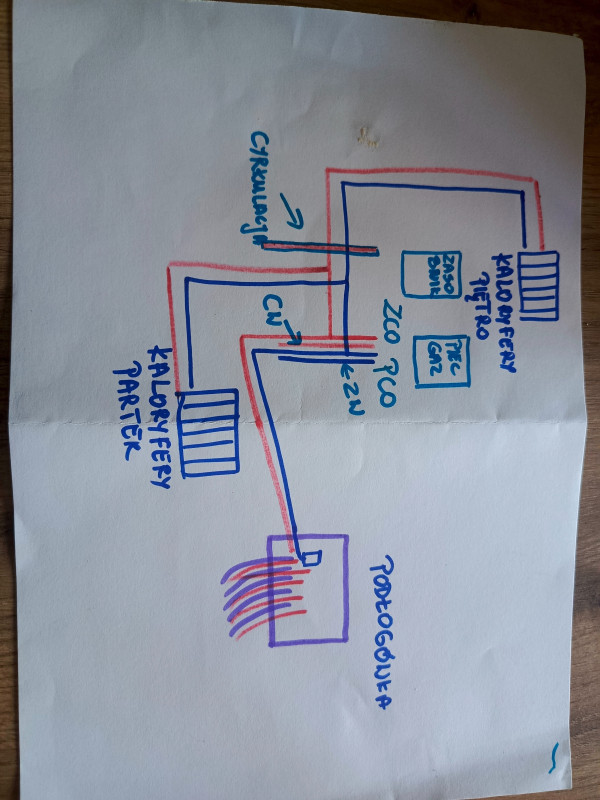 KALORYFERY
PIĘTRO
ZASO
BNIK
PIEC
GAZ
ZCO PCO
ZW
PODŁOGÓWKA
CYRKULACJA
CW
KALORYFERY
PARTER